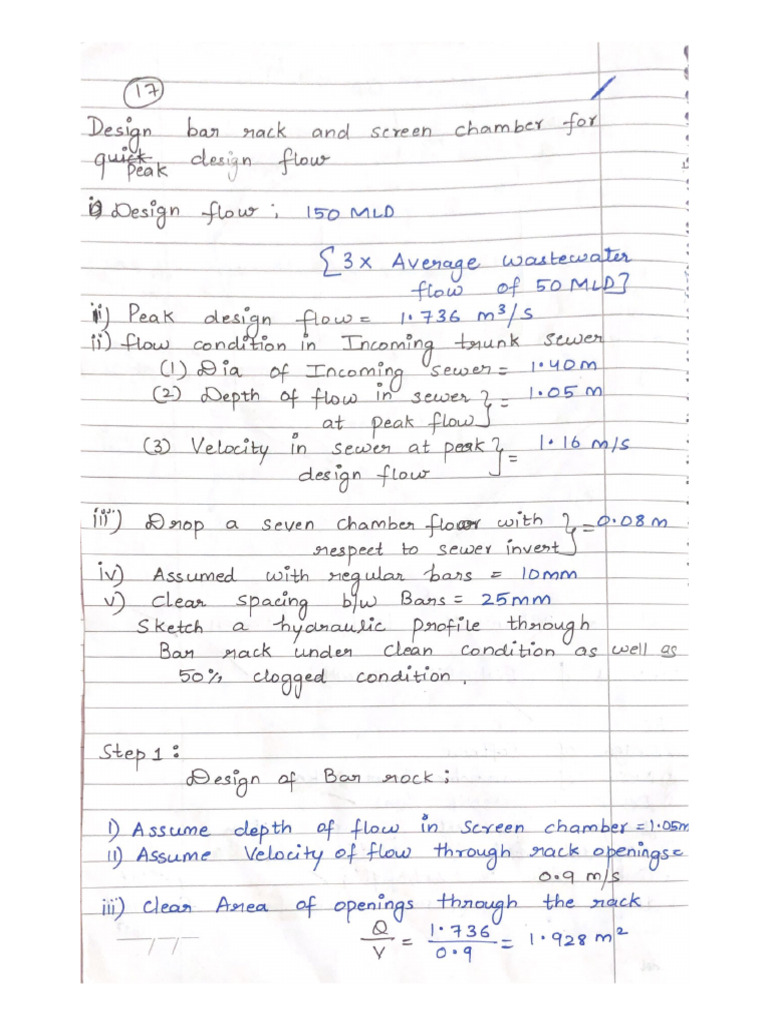 17
Design bar rack and screen chamber for
quick peak design flow
i) Design flow : 150 MLD
[3x Average wastewater
flow of 50 MLD]
ii) Peak design flow = 1.736 m³/s
ii) flow condition in Incoming trunk sewer
(1) Dia of Incoming sewer = 1.40m
(2) Depth of flow in sewer } = 1.05 m
at peak flow
(3) Velocity in sewer at peak } = 1.16 m/s
design flow
iii) Drop a seven chamber floor with } = 0.08 m
respect to sewer invert
iv) Assumed with regular bars = 10mm
v) clear spacing b/w Bars = 25mm
Sketch a hydraulic profile through
Bar rack under clean condition as well as
50% clogged condition.
Step 1 :
Design of Bar rock ;
i) Assume depth of flow in screen chamber = 1.05m
ii) Assume Velocity of flow through rack openings =
0.9 m/s
iii) clear Area of openings through the rack
Q/V = 1.736/0.9 = 1.928 m²